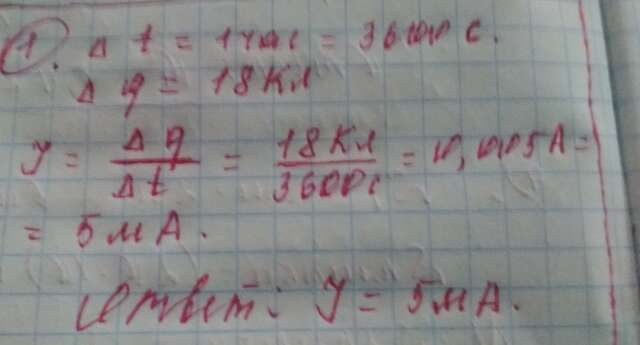 1. Δ t = 1 час = 3600 с.
Δ q = 18 Кл
J = Δq/Δt = 18 Кл/3600 с = 0,005 А =
= 5 мА.
Ответ: J = 5 мА.